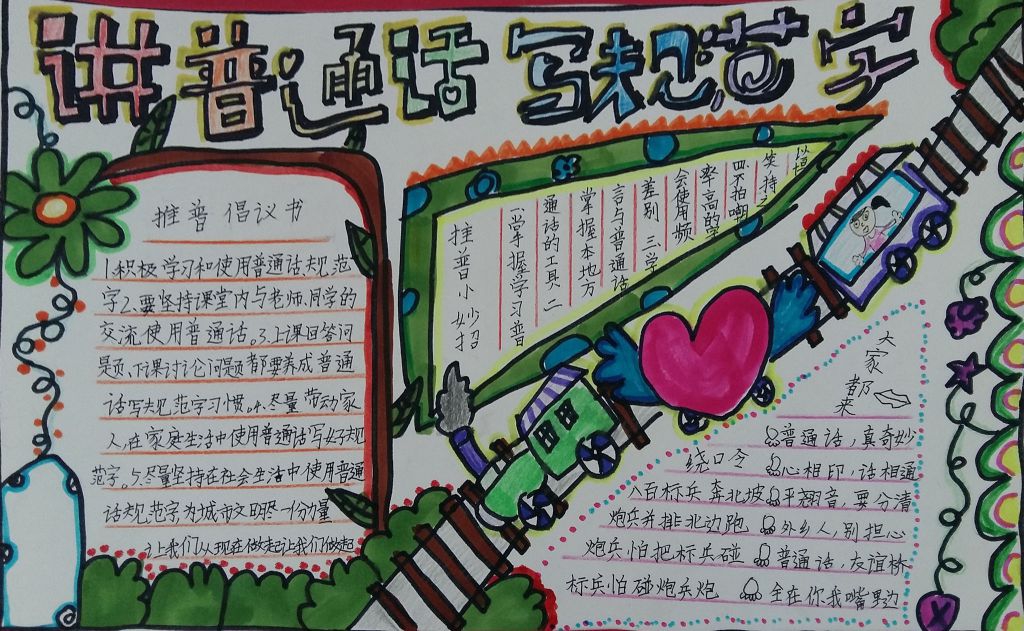 讲普通话 写规范字
推普倡议书
1.积极学习和使用普通话.规范
字2、要坚持课堂内与老师、同学的
交流使用普通话。3.上课回答问
题、下课讨论问题都要养成普通
话写规范字习惯。4.尽量带动家
人,在家庭生活中使用普通话写好规
范字。5.尽量坚持在社会生活中使用普通
话规范字,为城市文明尽一份力量
让我们从现在做起让我们做起
推普小妙招
掌握学习普
通话的工具 二
掌握本地方
言与普通话
差别 三学
会使用频
率高的字
四不怕嘲
笑持之
以恒
大家都来
绕口令
八百标兵奔北坡
炮兵并排北边跑
炮兵怕把标兵碰
标兵怕碰炮兵炮
普通话,真奇妙
心相印,话相通
平翘音,要分清
外乡人,别担心
普通话,友谊桥
全在你我嘴里边